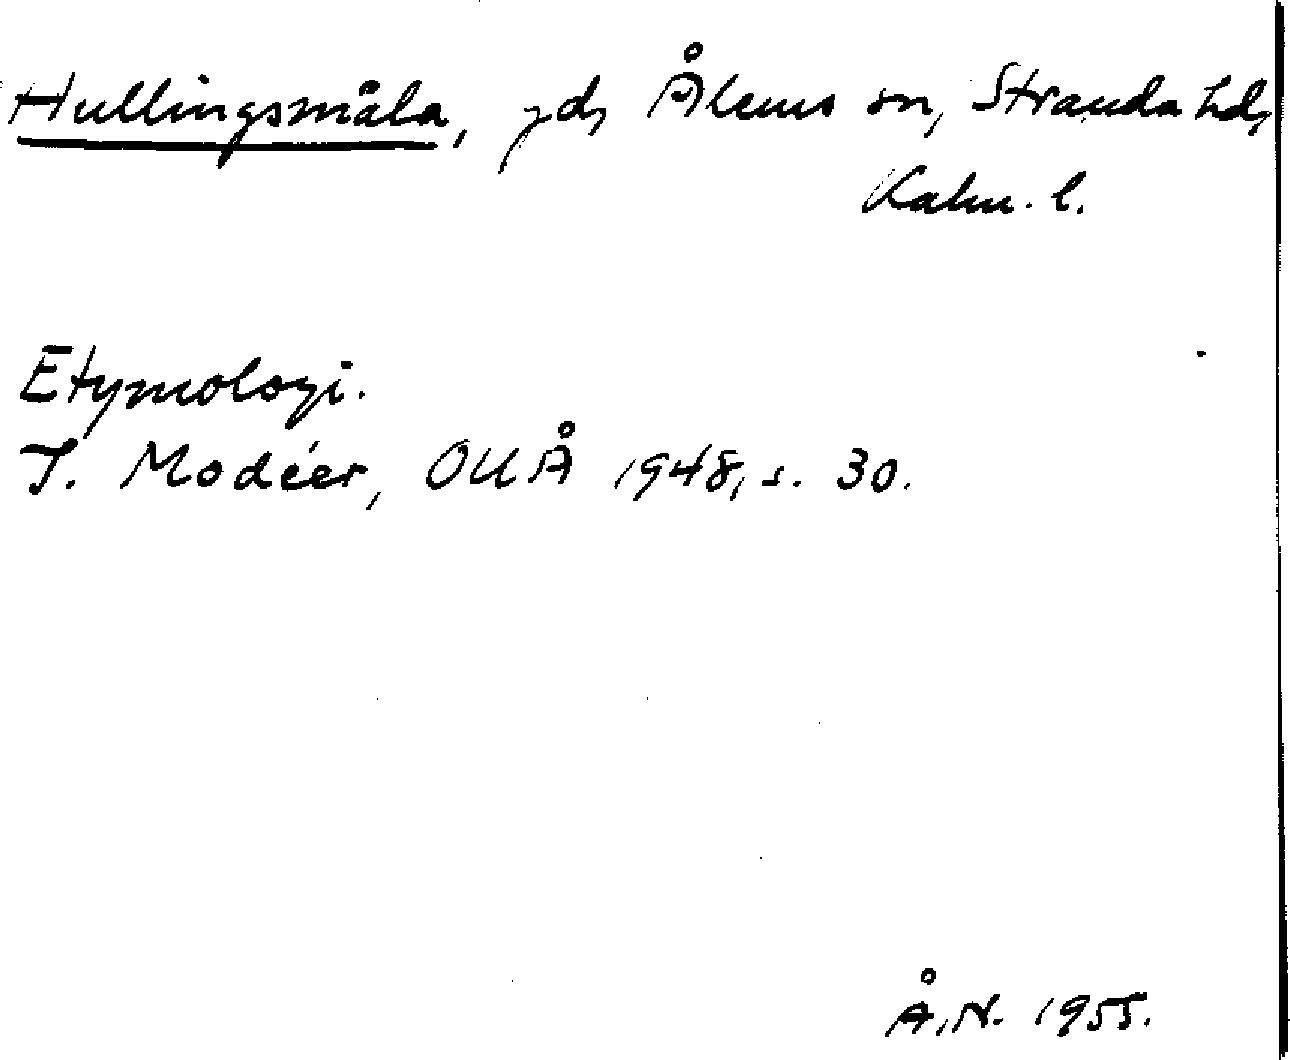 Hullingsmåla, gd, Ålems sn, Stranda hd,
Kalm. l.
Etymologi.
I. Modéer, OUÅ 1948, s. 30.
Å.N. 1955.